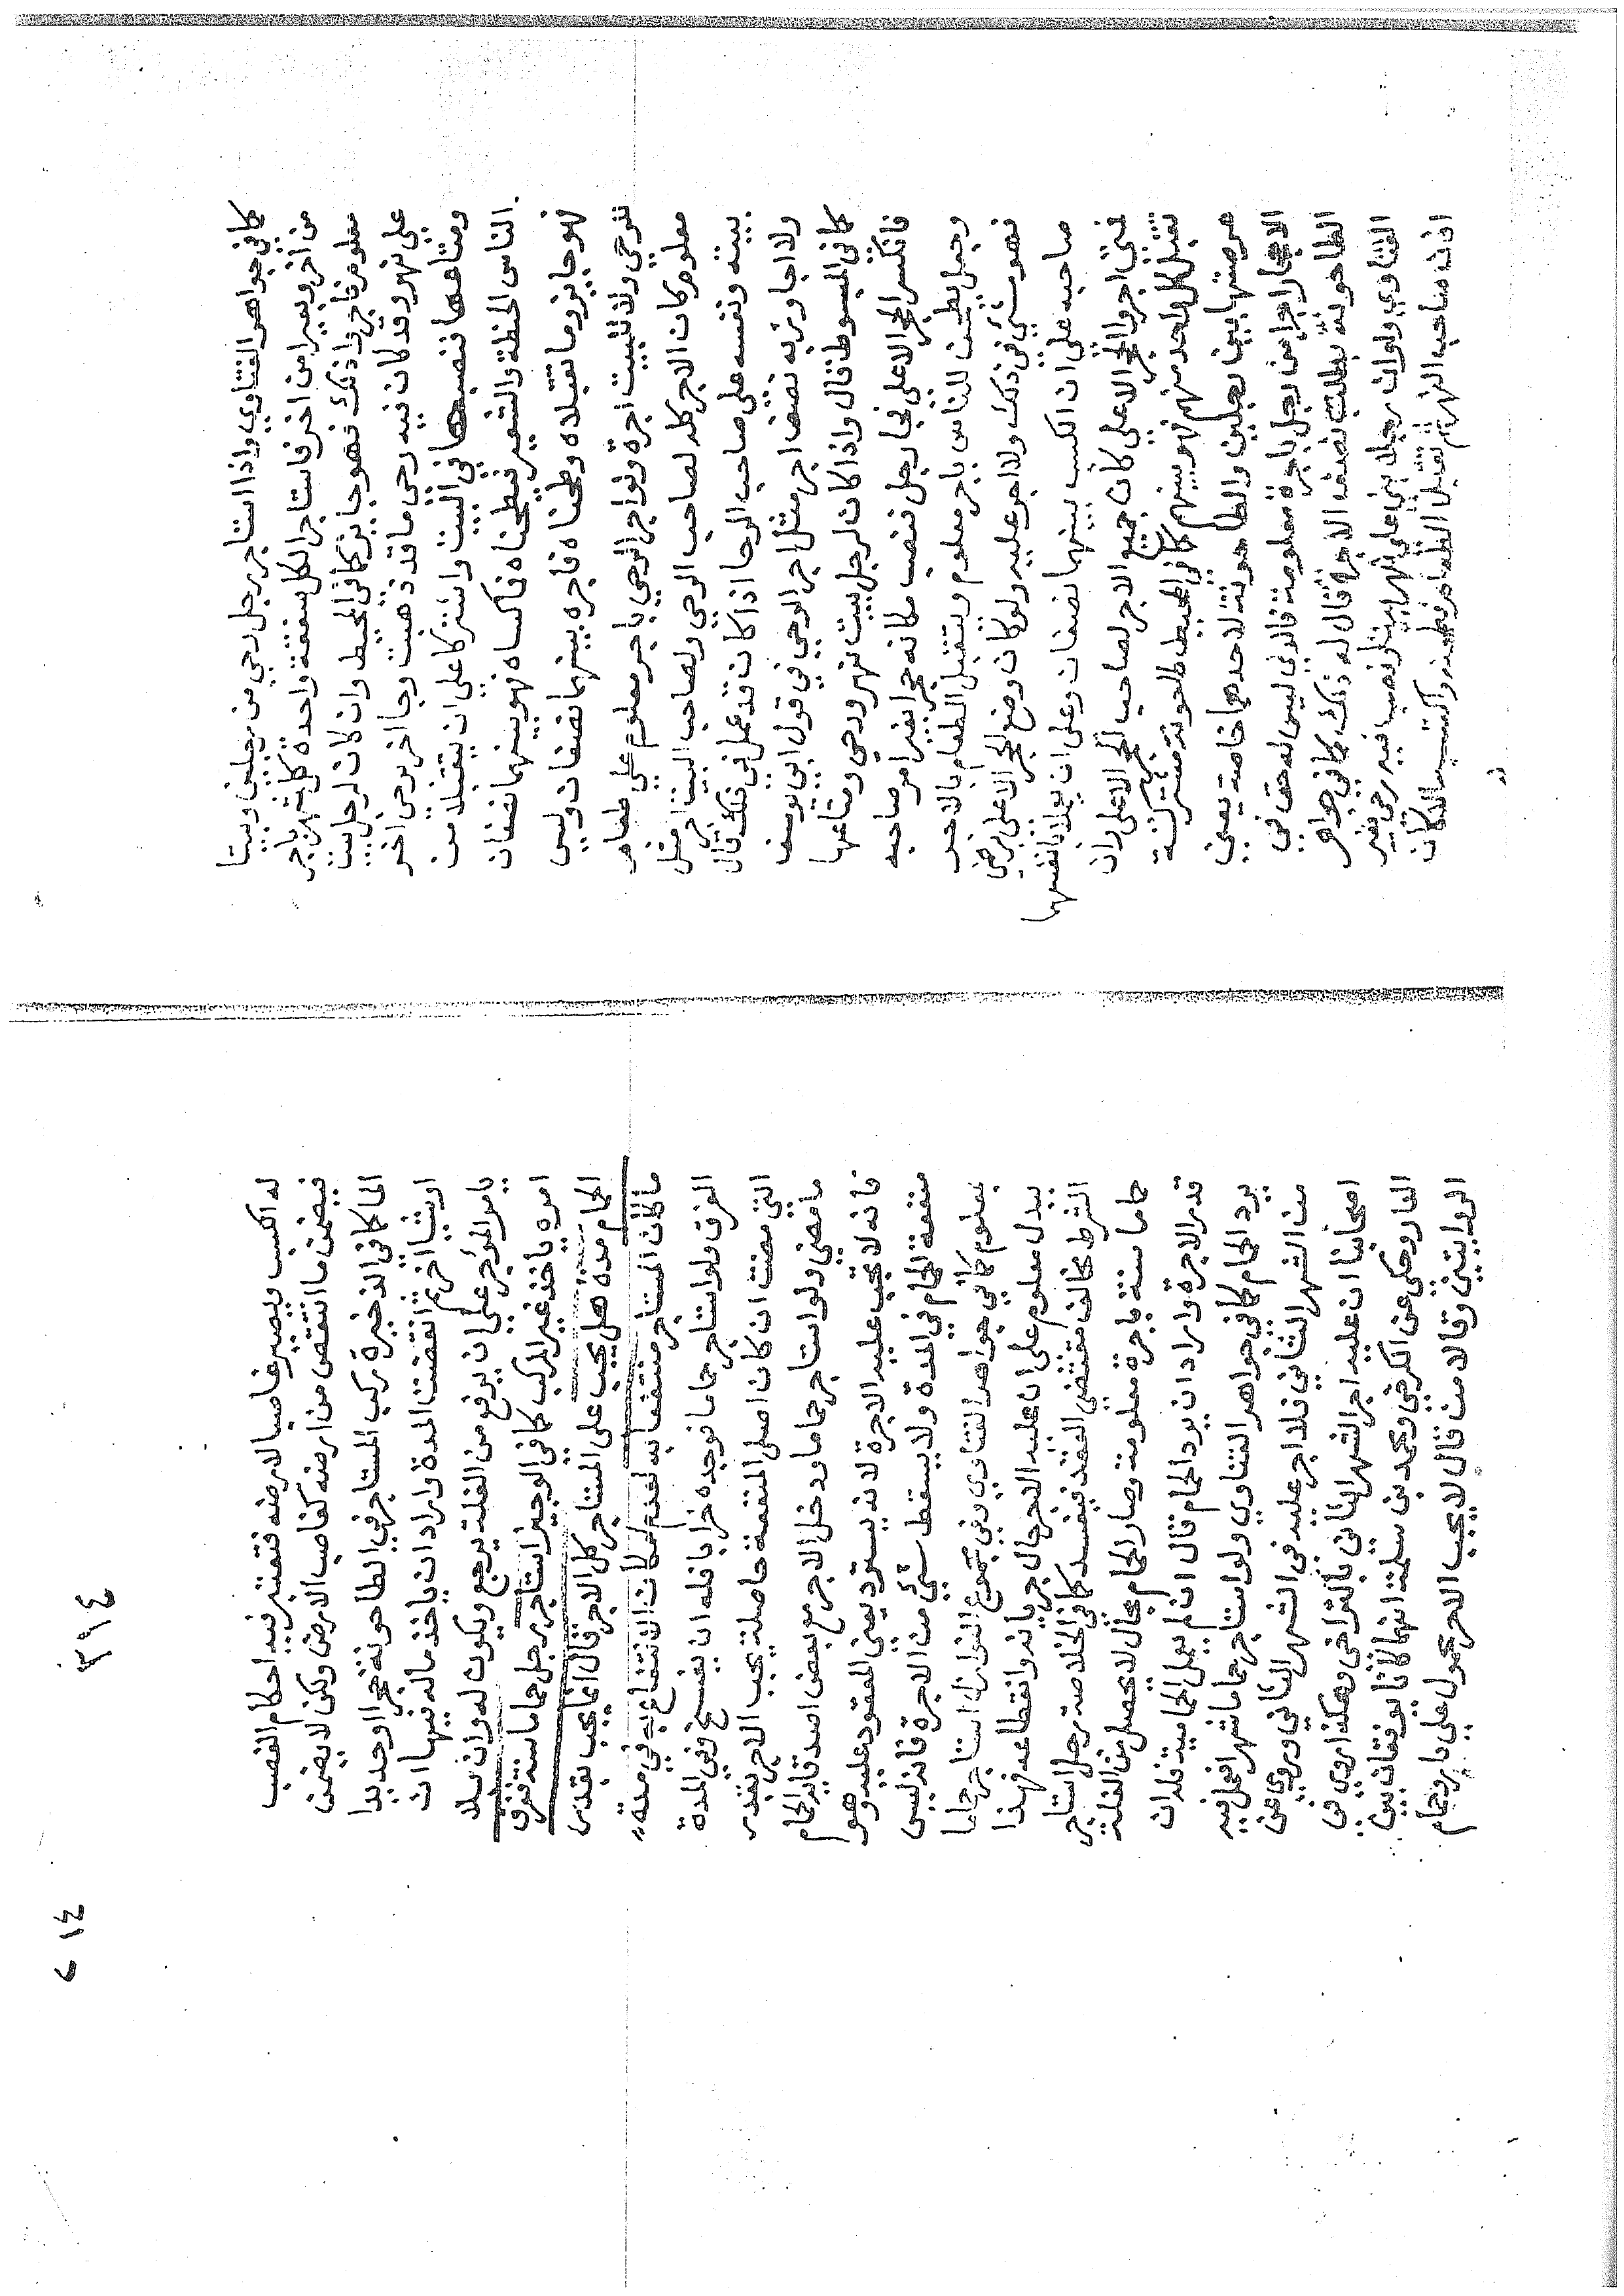 كما في جواهر الفتاوي واذا استاجر رجل رحي من رجلين وبيتا
من اخر وبعيرا من اخر فاستاجر الكل صفقة واحدة كل شهر باجر
معلوم فاجر ذلك فهو جايز كما في المحيط وان كان لرجل بيت
علي نهر وقد كان فيه رحي ماء قد ذهبت وجا اخر برحي اخر
ومتاعها فنصبها في البيت واشتركا علي ان يتقبلا من
الناس الحنطة والشعير فيطحناه فاكسباه فهو بينهما نصفان
فهو جايز وما تقبلاه وطحناه فاجره بينهما نصفان وليس
للرحي ولا للبيت اجرة ولو اجر الرحي باجر معلوم علي طعام
معلوم كان الاجر كله لصاحب الرحي ولصاحب البيت اجر مثل
بيته ونفسه علي صاحب الرحا اذا كان قد عمل في ذلك قال
ولا اجاوز به نصف اجر مثل اجر الرحي في قول ابي يوسف
كما في المبسوط قال واذا كان لرجل بيت نهر ورحي ومتاعها
فانكسر الحجر الاعلي فجا رجل فنصب مكانه حجرا بغير امر صاحبه
وجعل يطحن للناس باجر معلوم ويتقبل الطعام بالاجر
فهو مسئ في ذلك ولا اجر عليه ولو كان وضع الحجر الاعلي برضي
صاحبه علي ان الكسب بينهما نصفان وعلي ان يعملا بانفسهما
فمتي اجروا الحجر الاعلي كان جميع الاجر لصاحب الحجر الاعلي وان
تقبل كل واحد منهم فهو بينهم كما في المحيط طاحونة مشتركة
عرصتها بين رجلين والطاحونة لاحدهما خاصة يعني
الاحجار اجرا من رجل باجرة معلومة فالذي ليس له حق في
الطاحونة يطلب نصف الاجر قال له ذلك كما في جواهر
الفتاوي ولو ان رجلا بني علي نهر بيتا ونصب فيه رحي بغير
اذن صاحب النهر ثم تقبل الطعام فطحنه واكتسب مالا كان
له الكسب ويصير غاصبا لارضه فتعتبر فيه احكام الغصب
فيضمن ما انتقص من ارضه كغاصب الارض ولكن لا يضمن
الما كما في الذخيرة ركب المستاجر في الطاحونة حجرا او حديدا
او شيئا اخر ثم انقضت المدة واراد ان ياخذ ماله فيها ان
بامر المؤجر علي ان يرفع من الغلة يرجع ويكون له وان بلا
امره ياخذ غير المركب كما في الوجيز استاجر رجل حماما سنة فغرق
الحمام مدة هل يجب علي المستاجر كل الاجر قال انما يجب بقدر
ما كان المستاجر منتفعا به لعدم امكان الانتفاع به في مدة
الغرق ولو استاجر حماما فوجده خرابا فله ان يفسخ وفي المدة
التي مضت ان كان اصل المنفعة حاصلة يجب الاجر بقدر
ما مضي ولو استاجر حماما ودخل الاجر مع بعض اصدقايه الحمام
فانه لا تجب عليه الاجرة لانه يسترد بعض المعقود عليه وهو
منفعة الحمام في المدة ولا يسقط شئ من الاجرة لانه ليس
بمعلوم كما في جواهر الفتاوي وفي مجموع النوازل استاجر حماما
ببدل معلوم علي ان عليه الاجر حال جريانه وانقطاعه فهذا
الشرط مخالف مقتضي العقد فيفسد كما في الخلاصة رجل استاجر
حماما سنة باجرة معلومة وصار الحمام بحال لا يحصل من الغلة
قدر الاجرة واراد ان يرد الحمام قال ان لم يعمل الحمامية فله ان
يرد الحمام كما في جواهر الفتاوي ولو استاجر حماما شهرا فعمل فيه
من الشهر الثاني فلا اجر عليه في الشهر الثاني وروي عن
اصحابنا ان عليه اجر الشهر الثاني بالتراضي وهكذا روي في
الدار وحكي عن الكرخي ومحمد بن سلمة انهما كانا يوفقان بين
الروايتين وقالا من قال لا يجب الاجر محمول علي دار وحمام
٣١٤
٢١٤